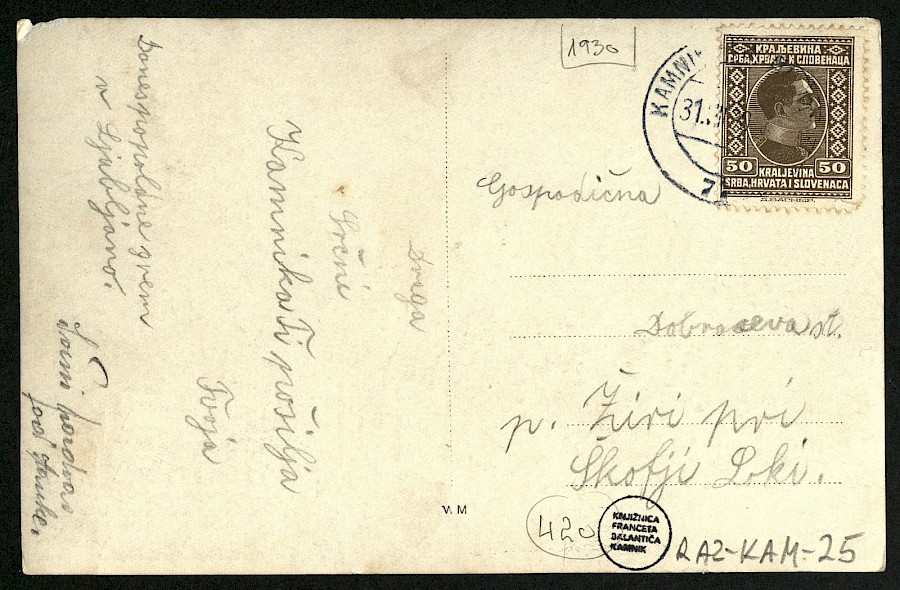 1930
KAMNIK
31.
КРАЉЕВИНА
СРБА, ХРВАТА И СЛОВЕНАЦА
50 50
KRALJEVINA
SRBA, HRVATA I SLOVENACA
Gospodična
st.
p. Žiri pri
Škofji Loki.
Draga
Srčni
Kamnika Ti pošilja
Tvoja
Danes popoldne grem
v Ljubljano.
pozdrav
V. M
420
KNJIŽNICA
FRANCETA
BALANTIČA
KAMNIK
RAZ-KAM-25